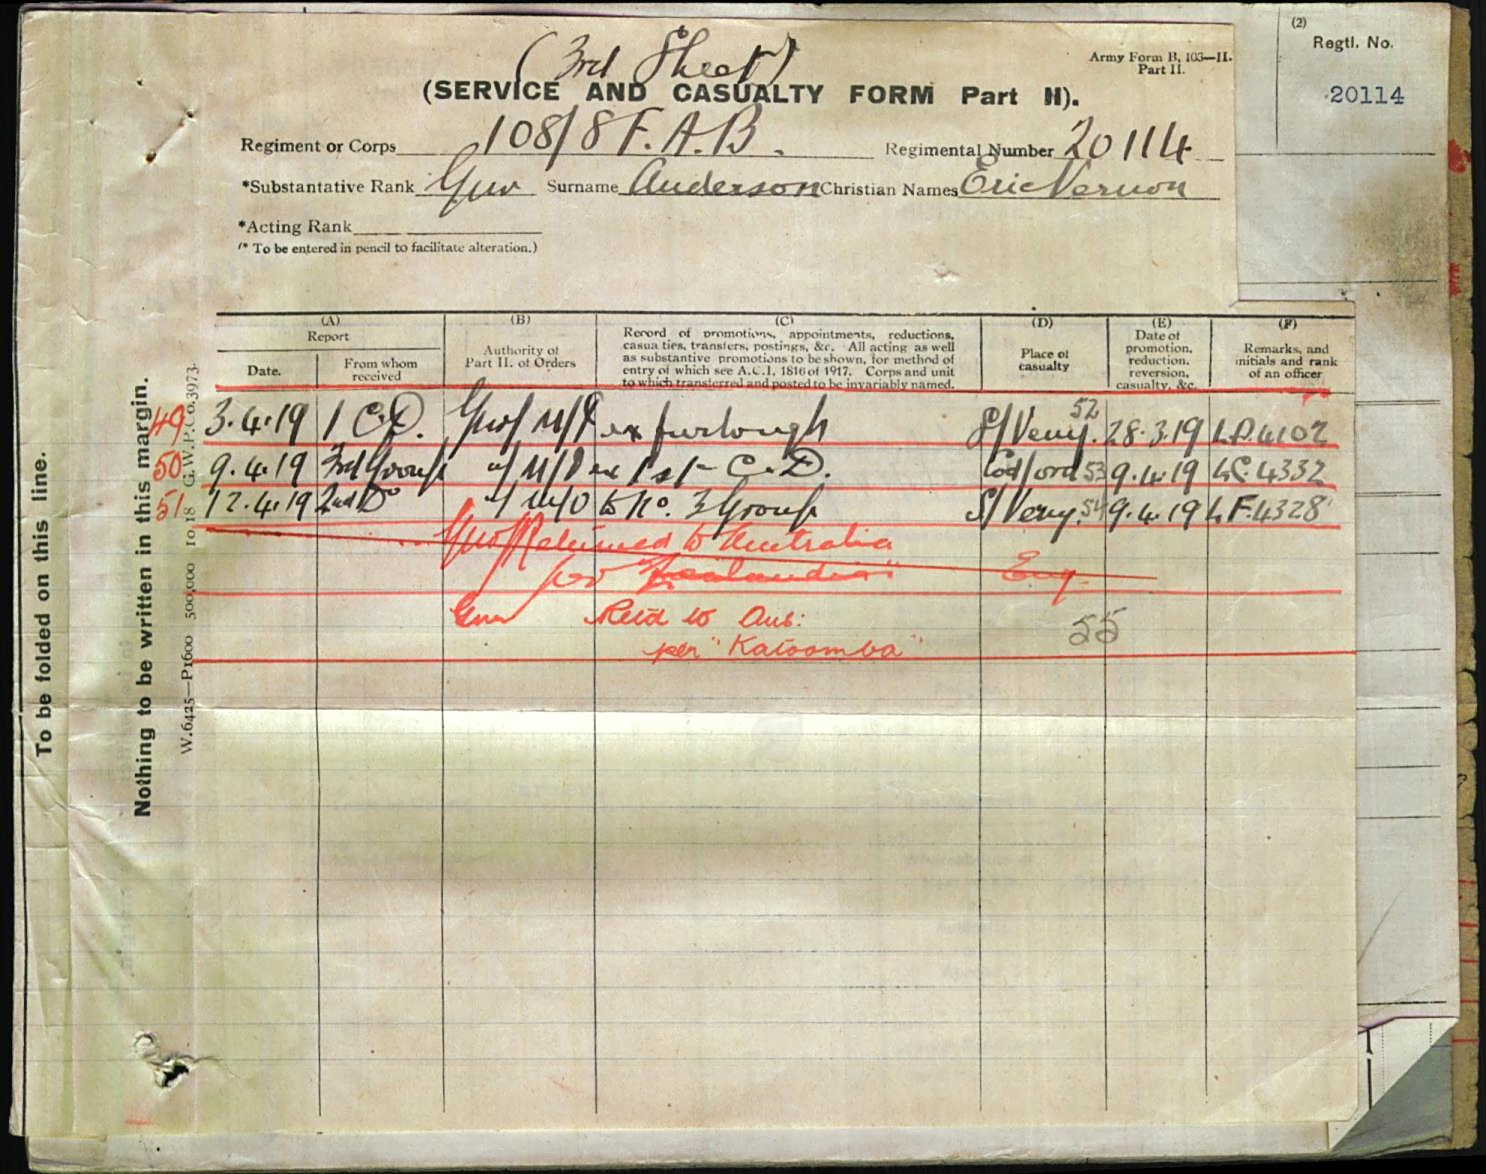 (2)
Regtl. No.
20114
(3rd Sheet)
Army Form B. 103—II.
Part II.
(SERVICE AND CASUALTY FORM Part II).
Regiment or Corps 108/8 F.A.B. Regimental Number 20114
*Substantative Rank Gnr Surname Anderson Christian Names Eric Vernon
*Acting Rank
(* To be entered in pencil to facilitate alteration.)
To be folded on this line.
Nothing to be written in this margin.
W.6425—P1600 500,000 10 18 G.W.P.Co.3973.
(A) (B) (C) (D) (E) (F)
Report
Date.
From whom
received
Authority of
Part II. of Orders
Record of promotions, appointments, reductions,
casualties, transfers, postings, &c. All acting as well
as substantive promotions to be shown, for method of
entry of which see A.C.I. 1816 of 1917. Corps and unit
to which transferred and posted to be invariably named.
Place of
casualty
Date of
promotion,
reduction,
reversion,
casualty, &c.
Remarks, and
initials and rank
of an officer
49 3.4.19 1 C.D. Gnr M/I ex furlough S/Veny. 52 28.3.19 L.D.4102
50 9.4.19 3rd Group M/I ex 1st C.D. Codford 53 9.4.19 LC.4332
51 12.4.19 2nd Do M/O to No. 3 Group S/Veny. 54 9.4.19 L.F.4328
Gnr Returned to Australia
per Zealandia" Eng.
Gnr Retd to Aus:
per "Katoomba" 55